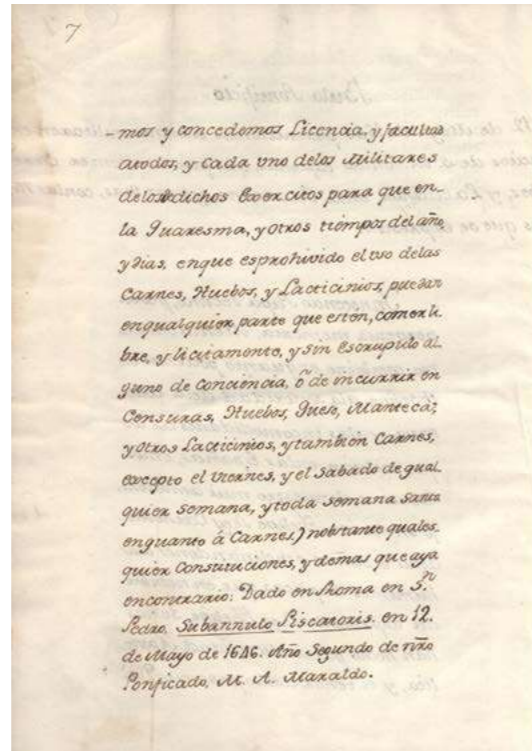 7
-mos y concedemos Licencia, y facultad
atodos, y Cada uno delos Militares
delos dichos Exercitos para que en-
la Quaresma, y otros tiempos del año,
y dias, enque esprohivido el uso delas
Carnes, Huebos, y Lacticinios, puedan
enqualquier parte que estén, comer li-
bre, y licitamente, y sin Escrupulo al-
guno de Conciencia, ó de incurrir en
Censuras, Huebos, Queso, Manteca,
y otros Lacticinios, y tambien Carnes,
excepto el viernes, y el Sabado de qual-
quier Semana, y toda Semana Santa
enquanto á Carnes.) nobstante quales-
quier Constituciones, y demas que aya
encontrario. Dado en Rhoma en S.n
Pedro, Subannulo Piscatoris. en 12.
de Mayo de 1646. Año Segundo de nro
Ponficado. M. A. Maraldo.